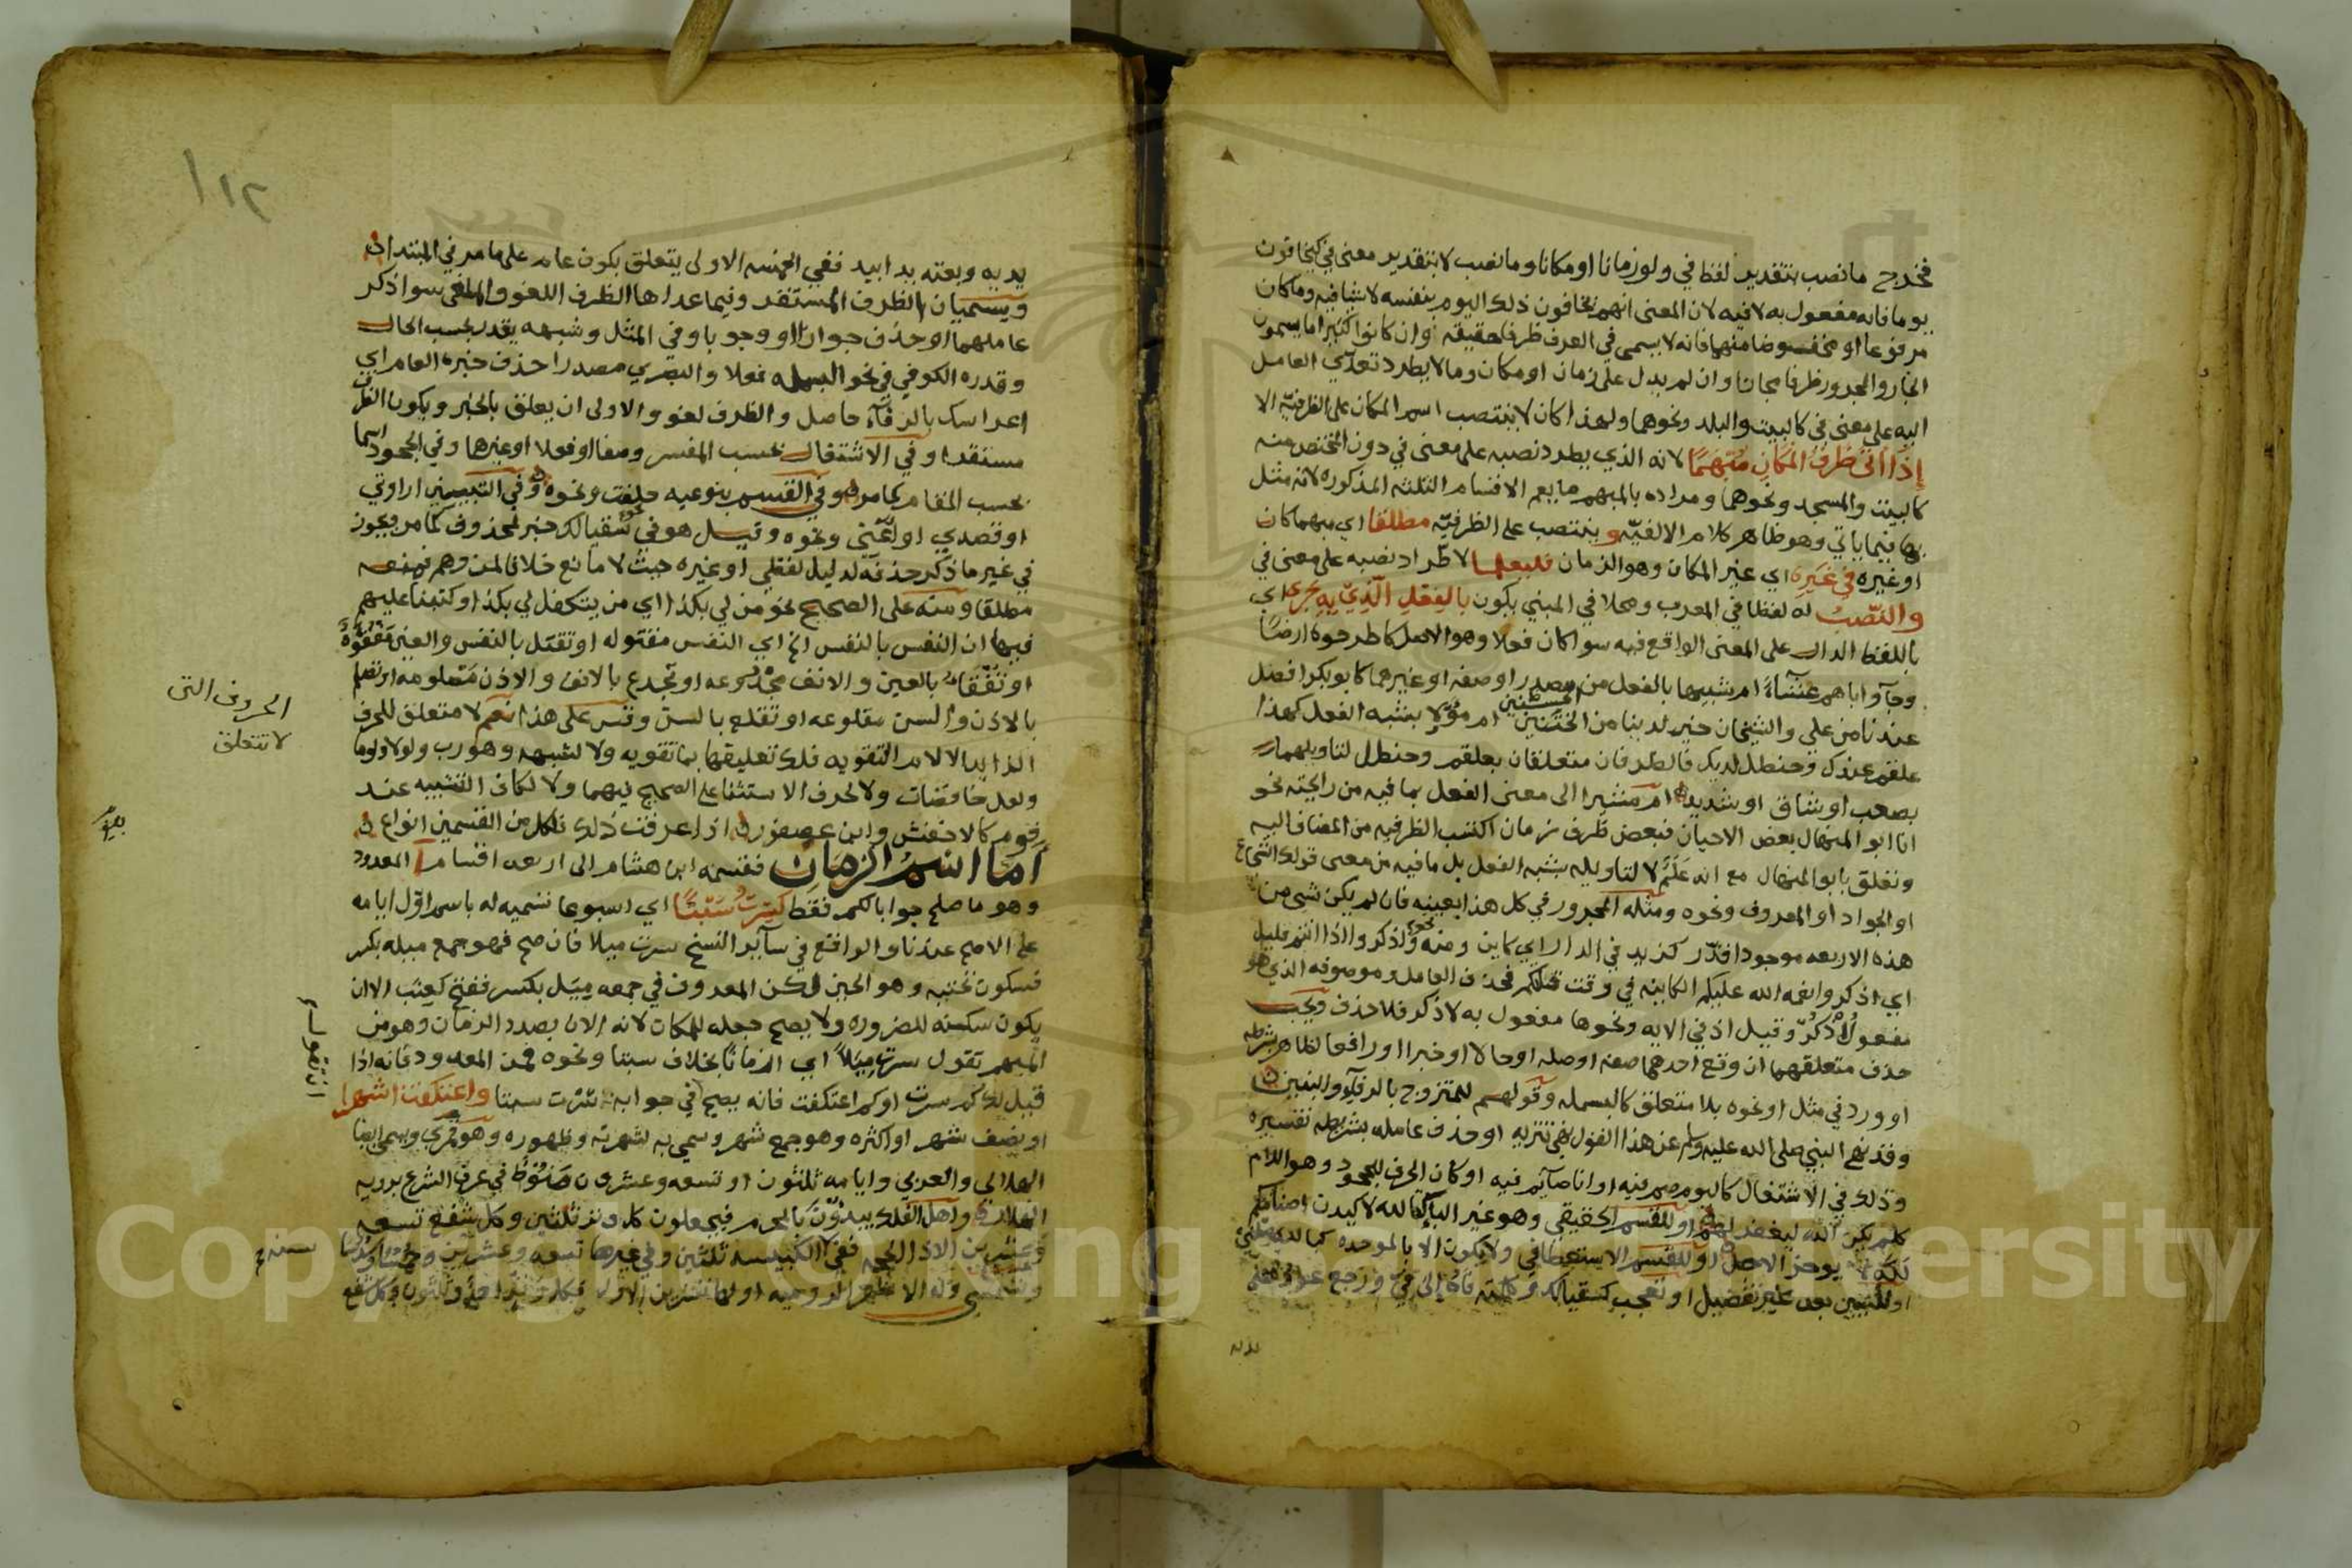 فخرج ما نصب بتقدير لفظ في ولو زمانا او مكانا وما نصب لا بتقدير معنى في كيخافون
يوما فانه مفعول به لا فيه لان المعنى انهم يخافون ذلك اليوم بنفسه لا شيا فيه وما كان
مرفوعا او مخفوضا منهما فانه لا يسمى في العرف ظرفا حقيقه وان كانوا كثيرا ما يسمون
الجار والمجرور ظرفا مجازا وان لم يدل على زمان او مكان وما لا يطرد تعدي العامل
اليه على معنى في كالبيت والبلد ونحوهما ولهذا كان لا ينتصب اسم المكان على الظرفيه الا
إذا أتى ظرف المكان مبهما لانه الذي يطرد نصبه على معنى في دون المختص منه
كالبيت والمسجد ونحوهما ومراده بالمبهم ما يعم الاقسام الثلثه المذكوره لانه مثل
بها فيما ياتي وهو ظاهر كلام الالفيّه و ينتصب على الظرفيّه مطلقا اي مبهما كان
او غيره في غيره اي غير المكان وهو الزمان فليعلما لاطّراد نصبه على معنى في
والنّصب له لفظا في المعرب ومحلا في المبني يكون بالفعل الّذي به جرى اي
باللفظ الدال على المعنى الواقع فيه سوا كان فعلا وهو الاصل كاطرحوه ارضًا
وجآوا اباهم عشآءً ام شبيها بالفعل من مصدر او صفه او غيرهما كابو بكر افضل
عندنا من علي والشيخان خير لدينا من الختنين ام مؤلا بشبه الفعل كهذا
علقم عندك وحنظل لديك فالظرفان متعلقان بعلقم وحنظل لتاويلهما
بصعب او شاق او شديد ام مشيرا الى معنى الفعل بما فيه من رايحته نحو
انا ابو المنهال بعض الاحيان فبعض ظرف زمان اكتسب الظرفيه من المضاف اليه
وتعلق بابو المنهال مع انه علم لا لتاويله بشبه الفعل بل ما فيه من معنى قولك الشجاع
او الجواد او المعروف ونحوه ومثله المجرور في كل هذا بعينه فان لم يكن شي من
هذه الاربعه موجودا قدّر كزيد في الدار اي كاين ومنه واذكروا اذ انتم قليل
اي اذكروا نعمه الله عليكم الكاينه في وقت قلتكم فحذف العامل وموصوفه الذي هو
مفعول اذكر وقيل اذ في الايه ونحوها مفعول به لاذكر فلا حذف ويجب
حذف متعلقهما ان وقع احدهما صفه او صله او حالا او خبرا او رافعا لظاهر بشرطه
او ورد في مثل او نحوه بلا متعلق كالبسمله وقولهم للمتزوج بالرفآء والبنين
وقد نهى النبي صلى الله عليه وسلم عن هذا القول نهي تنزيه او حذف عامله بشريطه تفسيره
وذلك في الاشتغال كاليوم صم فيه او انا صآيم فيه او كان الحرف للجحود وهو اللام
كلم يكن الله ليغفر لهم او للقسم الحقيقي وهو غير البا كتالله لاكيدن اصنامكم
او للقسم الاستعطافي ولا يكون الا بالموحده
او للتبيين بعد غير تفضيل او تعجب كسقيا لك
يديه وبعته يدا بيد ففي الخمسه الاولى يتعلق بكون عام على ما مر في المبتدا
ويسميان بالظرف المستقر وفيما عداها الظرف اللغو والملغى سوا ذكر
عاملهما او حذف جوازا او وجوبا وفي المثل وشبهه يقدر بحسب الحال
وقدره الكوفي في نحو البسمله فعلا والبصري مصدرا حذف خبره العام اي
اعراسك بالرفآء حاصل والظرف لغو والاولى ان يعلق بالخبر ويكون الظرف
مستقرا وفي الاشتغال بحسب المفسر وصفا او فعلا او غيرها وفي الجحود اسما
بحسب المقام كما مر وفي القسم بنوعيه حلفت ونحوه وفي التبيين ارادتي
او قصدي او اعني ونحوه وقيل هو في نحو سقيا لك خبر لمحذوف كما مر ويجوز
في غير ما ذكر حذفه لدليل لفظي او غيره حيث لا مانع خلافا لمن وهم فمنعه
مطلقا ومنه على الصحيح نحو من لي بكذا اي من يتكفل لي بكذا وكتبنا عليهم
فيها ان النفس بالنفس الخ اي النفس مقتوله او تقتل بالنفس والعين مفقوّه
او تفقا بالعين والانف مجدوعه او تجدع بالانف والاذن مصلومه او تصلم
بالاذن والسن مقلوعه او تقلع بالسن وقس على هذا نعم لا متعلق للحرف
الزايد الا لام التقويه فلك تعليقها بما تقويه ولا لشبهه وهو رب ولولا ولوما
ولعل خافضات ولا لحرف الاستثنا على الصحيح فيهما ولا لكاف التشبيه عند
قوم كالاخفش وابن عصفور اذا عرفت ذلك فلكل من القسمين انواع
أمّا اسم الزمان فقسمه ابن هشام الى اربعه اقسام المعدود
وهو ما صلح جوابا لكم فقط كسرت سبتًا اي اسبوعا تسميه له باسم اوّل ايامه
على الاصح عندنا والواقع في سآير النسخ سرت ميلا فان صح فهو جمع ميله بكسر
فسكون تحتيه وهو الحين لكن المعروف في جمعه مِيَل بكسر ففتح كعنب الا ان
يكون سكنه للضروره ولا يصح جعله للمكان لانه الان بصدد الزمان وهو من
المبهم تقول سرت مِيَلاً اي ازمانًا بخلاف سبتا ونحوه فمن المعدود فانه اذا
قيل لك كم سرت او كم اعتكفت فانه يصح في جوابه سرت سبتا واعتكفت اشهرا
او نصف شهر او اكثره وهو جمع شهر وسمي به لشهرته وظهوره وهو قمري ويسمى ايضا
الهلالي والعربي وايامه ثلثون او تسعه وعشرون منوط في عرف الشرع برويه
الهلال واهل الفلك يبدؤن بالمحرم فيجعلون كل وتر ثلثين وكل شفع تسعه
وعشرين الا ذا الحجه ففي الكبيسه ثلثين وفي غيرها تسعه وعشرين
الحروف التي
لا تتعلق
١١٢